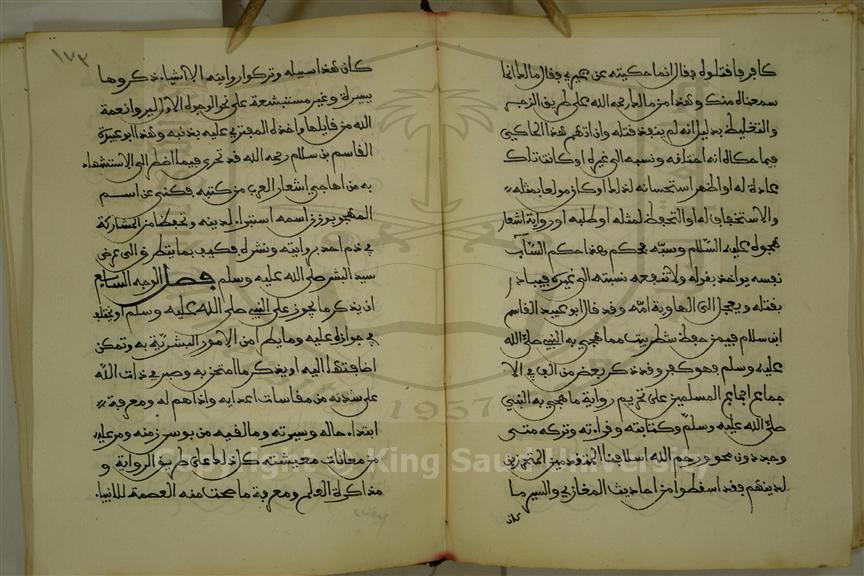 كافر فاقتلوه فقال انما حكيته عن غيري فقال مالك انما
سمعناه منك وهذا من مالك رحمه الله على طريق الزجر
والتغليظ بدليل انه لم ينفذ قتله وان اتهم هذا الحاكي
فيما حكاه انه اختلقه ونسبه الى غيره او كانت تلك
عادة له او اظهر استحسانه لذلك او كان مولعا بمثله
والاستخفاف له او التحفظ لمثله او طلبه او رواية اشعار
هجوه عليه السلام وسبه فحكم هذا حكم الساب
نفسه يواخذ بقوله ولا تنفعه نسبته الى غيره فيبادر
بقتله ويعجل الى الهاوية امه وقد قال ابو عبيد القاسم
ابن سلام فيمن حفظ شطر بيت مما هجي به النبي صلى الله
عليه وسلم فهو كفر وقد ذكر بعض من الف في الا
جماع اجماع المسلمين على تحريم رواية ما هجي به النبي
صلى الله عليه وسلم وكتابته وقراءته وتركه متى
وجد دون محو ورحم الله اسلافنا المتقدمين المتحرزين
لدينهم فقد اسقطوا من احاديث المغازي والسير ما
كان
١٧٣
كان هذا سبيله وتركوا روايته الا اشياء ذكروها
يسيرة وغير مستبشعة على نحو الوجوه الاول ليروا نقمة
الله من قايلها واخذه المفتري عليه بذنبه وهذا ابو عبيد
القاسم بن سلام رحمه الله قد تحرى فيما اضطر الى الاستشهاد
به من اهاجي اشعار العرب من كتبه فكنى عن اسم
المهجو بوزن اسمه استبراء لدينه وتحفظا من المشاركة
في ذم احد بروايته ونشره فكيف بما يتطرق الى عرض
سيد البشر صلى الله عليه وسلم فصل الوجه السابع
ان يذكر ما يجوز على النبي صلى الله عليه وسلم او يختلف
في جوازه عليه وما يطرا من الامور البشرية به وتمكن
اضافتها اليه او يذكر ما امتحن به وصبر في ذات الله
على شدته من مقاسات اعدايه واذاهم له ومعرفة
ابتداء حاله وسيرته وما لقيه من بوس زمنه ومر عليه
من معانات معيشته كل ذلك على طريق الرواية و
مذاكرة العلم ومعرفة ما صحت منه العصمة للانبيا
1957
Copyright © King Saud University